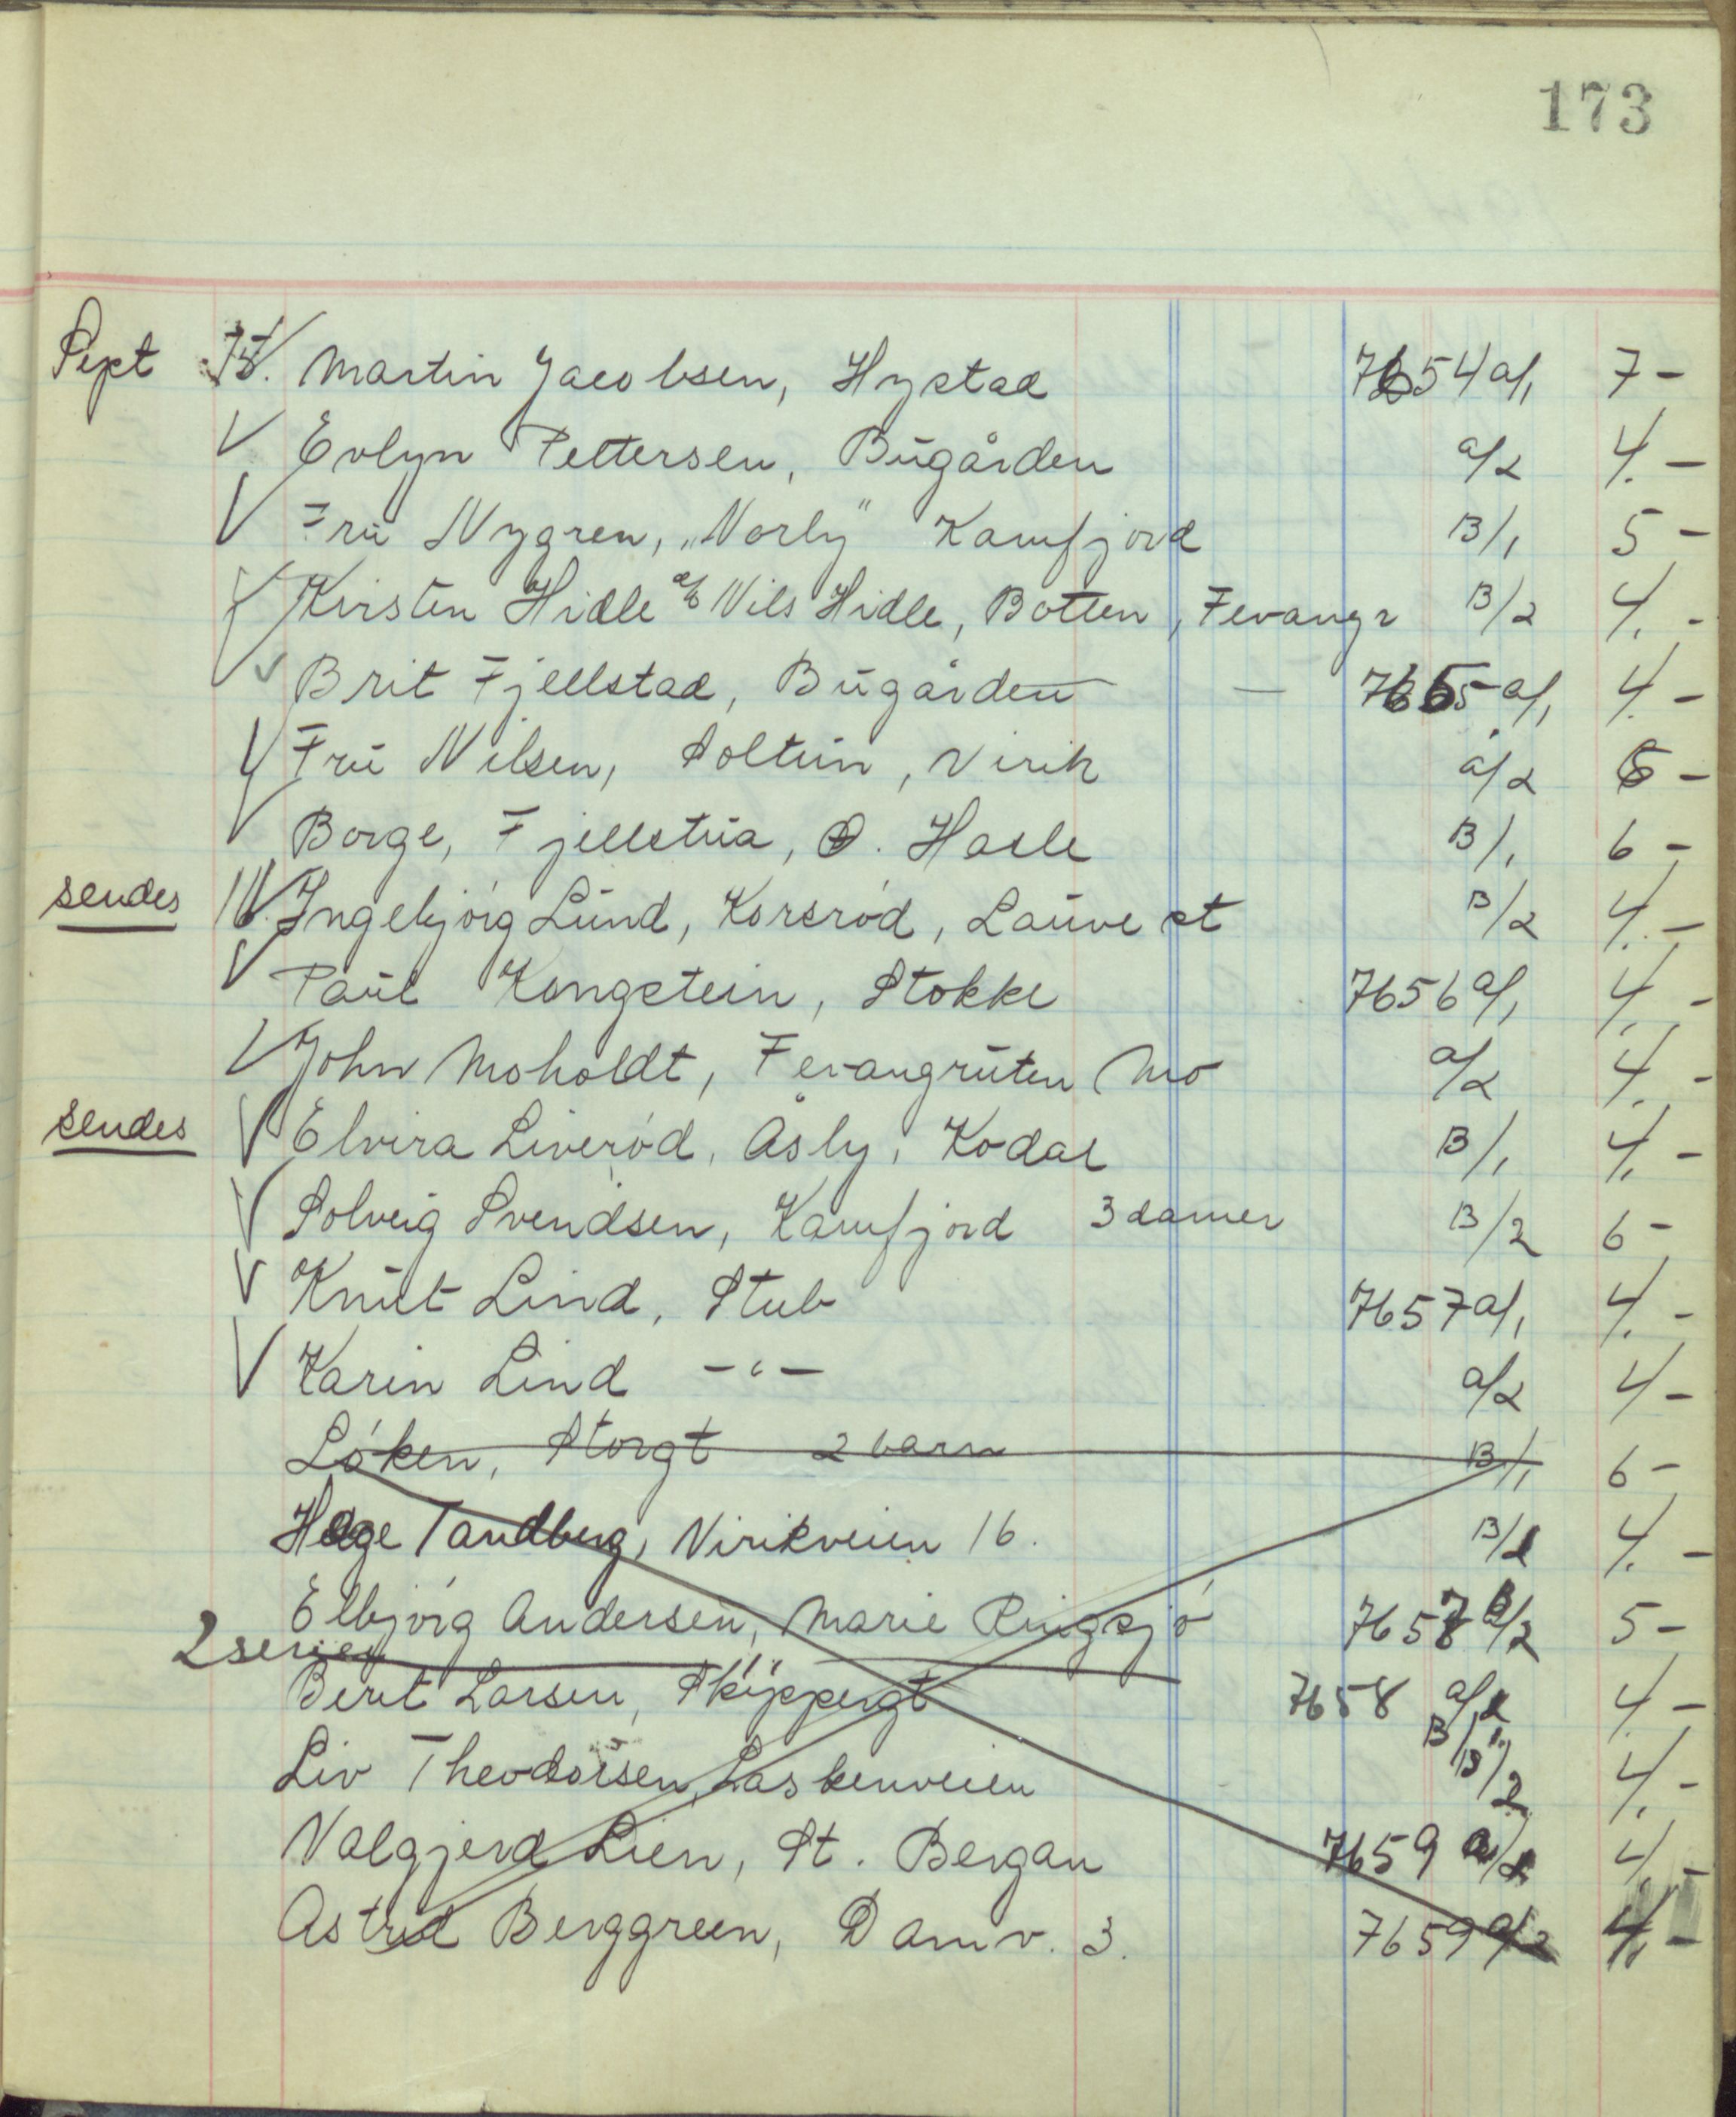 173
Sept 15. Martin Jacobsen, Hystad 7654 a/1 7 -
Evlyn Pettersen, Bugården a/2 4. -
Fru Nygren, „Norly" Kamfjord B/1 5 -
Kirsten Hidle Nils Hidle, Botten, Fevangr B/2 4. -
Brit Fjellstad, Bugården - 7655 a/1 4. -
Fru Nilsen, Soltun, Virik a/2 6 -
Borge, Fjellstua, Ø. Hasle B/1 6 -
sendes 16. Ingebjørg Lund, Korsrød, Lauve st B/2 4. -
Paul Kongstein, Stokke 7656 a/1 4. -
John Moholdt, Fevangruten Mo a/2 4. -
sendes Elvira Liverød, Åsly, Kodal B/1 4. -
Solveig Svendsen, Kamfjord 3 damer B/2 6 -
Knut Lind, Stub 7657 a/1 4. -
Karin Lind -"- a/2 4 -
Løken, Storgt 2 barn B/1 6 -
Hege Tandberg, Virikveien 16. 4. -
Elbjørg Andersen, Marie Ringsjø 7657 B/2 5 -
2 serier
Berit Larsen, Skippergt 7658 4. -
Liv Theodorsen, Laskenveien B/2 4. -
Valgjerd Lien, St. Bergan 7659 4. -
Astrid Berggreen, Damv. 3. 7659 a/2 4. -